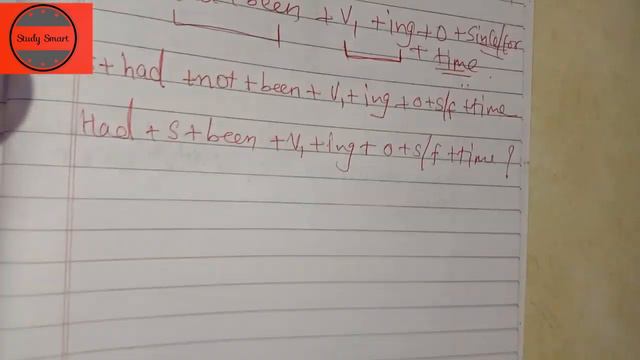 Study Smart
been + V₁ + ing + O + Since/for
+ time
+ had + not + been + V₁ + ing + O + s/f + time
Had + S + been + V₁ + ing + O + s/f + time ?